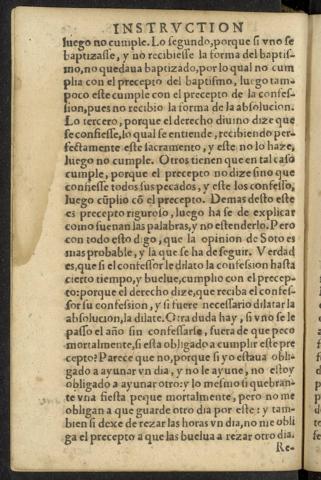 INSTRVCTION
luego no cumple. Lo segundo, porque si vno se
baptizasse, y no recibiesse la forma del baptis-
mo, no quedaua baptizado, por lo qual no cum
plia con el precepto del baptismo, luego tam-
poco este cumple con el precepto de la confes-
sion, pues no recibio la forma de la absolucion.
Lo tercero, porque el derecho diuino dize que
se confiesse, lo qual se entiende, recibiendo per-
fectamente este sacramento, y este no lo haze,
luego no cumple. Otros tienen que en tal caso
cumple, porque el precepto no dize sino que
confiesse todos sus pecados, y este los confesso,
luego cũplio cõ el precepto. Demas desto este
es precepto riguroso, luego ha se de explicar
como suenan las palabras, y no estenderlo. Pero
con todo esto digo, que la opinion de Soto es
mas probable, y la que se ha de seguir. Verdad
es, que si el confessor le dilato la confession hasta
cierto tiempo, y buelue, cumplio con el precep-
to: porque el derecho dize, que reciba el confes-
sor su confession, y si fuere necessario dilatar la
absolucion, la dilate. Otra duda hay, si vno se le
passo el año sin confessarse, fuera de que peco
mortalmente, si esta obligado a cumplir este pre
cepto? Parece que no, porque si yo estaua obli-
gado a ayunar vn dia, y no le ayune, no estoy
obligado a ayunar otro: y lo mesmo si quebran-
te vna fiesta peque mortalmente, pero no me
obligan a que guarde otro dia por este: y tam-
bien si dexe de rezar las horas vn dia, no me obli
ga el precepto a que las buelua a rezar otro dia.
Re-